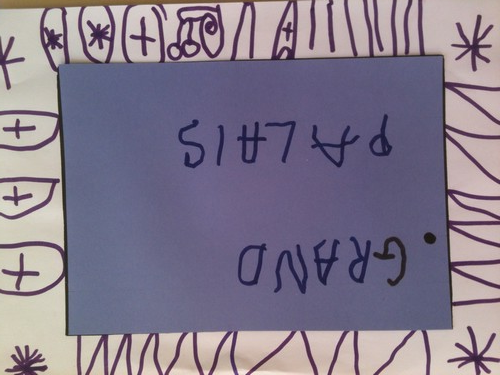 GRAND
PALAIS